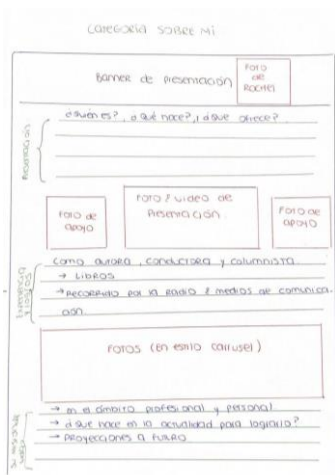 CATEGORIA SOBRE MI
Banner de presentación
FOTO
DE
ROCHEL
¿Quién es?, ¿Qué hace?, ¿Qué ofrece?
FOTO DE
APOYO
FOTO / VIDEO DE
Presentación
FOTO DE
APOYO
Como autora, conductora y columnista
→ LIBROS
→ RECORRIDO POR LA RADIO & MEDIOS DE COMUNICA-
CIÓN.
FOTOS (en estilo carrusel)
→ en el ámbito profesional y personal
→ ¿Qué hace en la actualidad para lograrlo?
→ Proyecciones a futuro